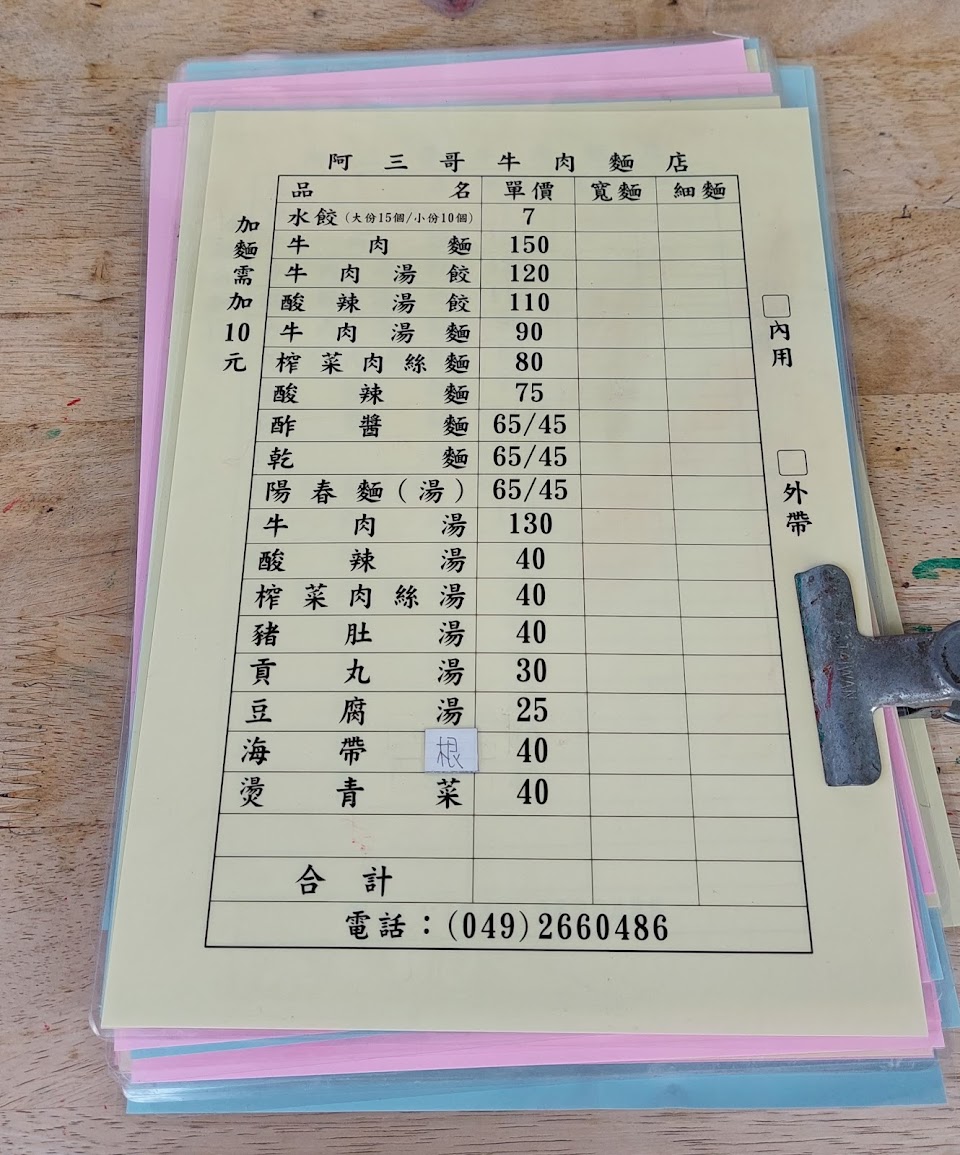 阿三哥牛肉麵店
品名 單價 寬麵 細麵
水餃(大份15個/小份10個) 7
牛肉麵 150
牛肉湯餃 120
酸辣湯餃 110
牛肉湯麵 90
榨菜肉絲麵 80
酸辣麵 75
酢醬麵 65/45
乾麵 65/45
陽春麵(湯) 65/45
牛肉湯 130
酸辣湯 40
榨菜肉絲湯 40
豬肚湯 40
貢丸湯 30
豆腐湯 25
海帶根 40
燙青菜 40
合計
電話：(049)2660486
加麵需加10元
內用
外帶
TAIWAN